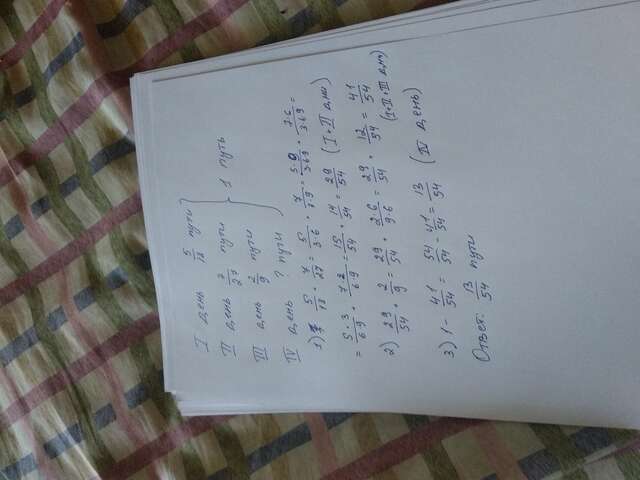 I день 5/18 пути
II день 7/27 пути
III день 2/9 пути
IV день ? пути
1 путь
1) 5/18 + 7/27 = 5/3·6 + 7/3·9 = 5·9/3·6·9 + 7·6/3·6·9 =
= 5·3/6·9 + 7·2/6·9 = 15/54 + 14/54 = 29/54 (I+II дни)
2) 29/54 + 2/9 = 29/54 + 2·6/9·6 = 29/54 + 12/54 = 41/54
(I+II+III дня)
3) 1 - 41/54 = 54/54 - 41/54 = 13/54 (IV день)
Ответ: 13/54 пути